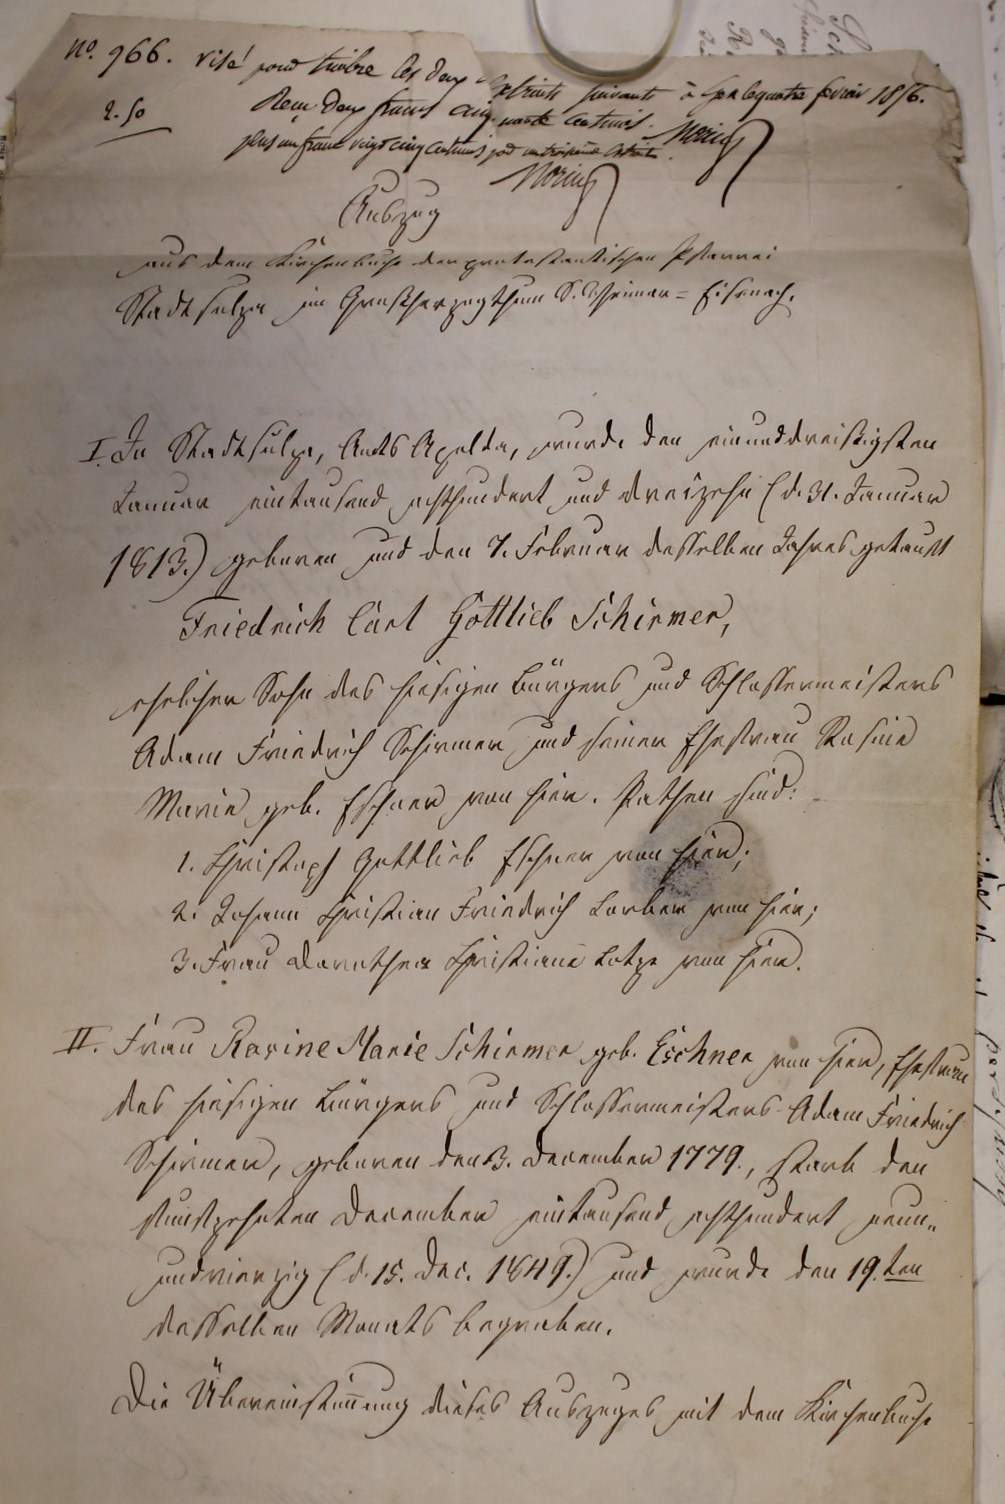 No. 966. Visé pour timbre les deux
extraits suivants à Spa le quatre février 1856.
2.50
Reçu deux francs cinquante centimes.
plus un franc vingt cinq centimes pour un troisième extrait.
Auszug
aus dem Kirchenbuche der protestantischen Pfarrei
Stadtsulza im Großherzogthum S. Weimar=Eisenach.
I. In Stadtsulza, Amts Apolda, wurde den einunddreißigsten
Januar eintausend achthundert und dreizehn (d. 31. Januar
1813.) geboren und den 7. Februar desselben Jahres getauft
Friedrich Carl Gottlieb Schirmer,
ehelicher Sohn des hiesigen Bürgers und Schlossermeisters
Adam Friedrich Schirmer und seiner Ehefrau Rosine
Marie geb. Eschner von hier. Pathen sind:
1. Christoph Gottlieb Eschner von hier;
2. Johann Christian Friedrich Lorber von hier;
3. Frau Dorothea Christiane Lotze von hier.
II. Frau Rosine Marie Schirmer geb. Eschner von hier, Ehefrau
des hiesigen Bürgers und Schlossermeisters Adam Friedrich
Schirmer, geboren den 3. December 1779., starb den
funfzehnten December eintausend achthundert neun-
undvierzig (d. 15. Dec. 1849.) und wurde den 19.ten
desselben Monats begraben.
Die Übereinstimmung dieses Auszuges mit dem Kirchenbuche